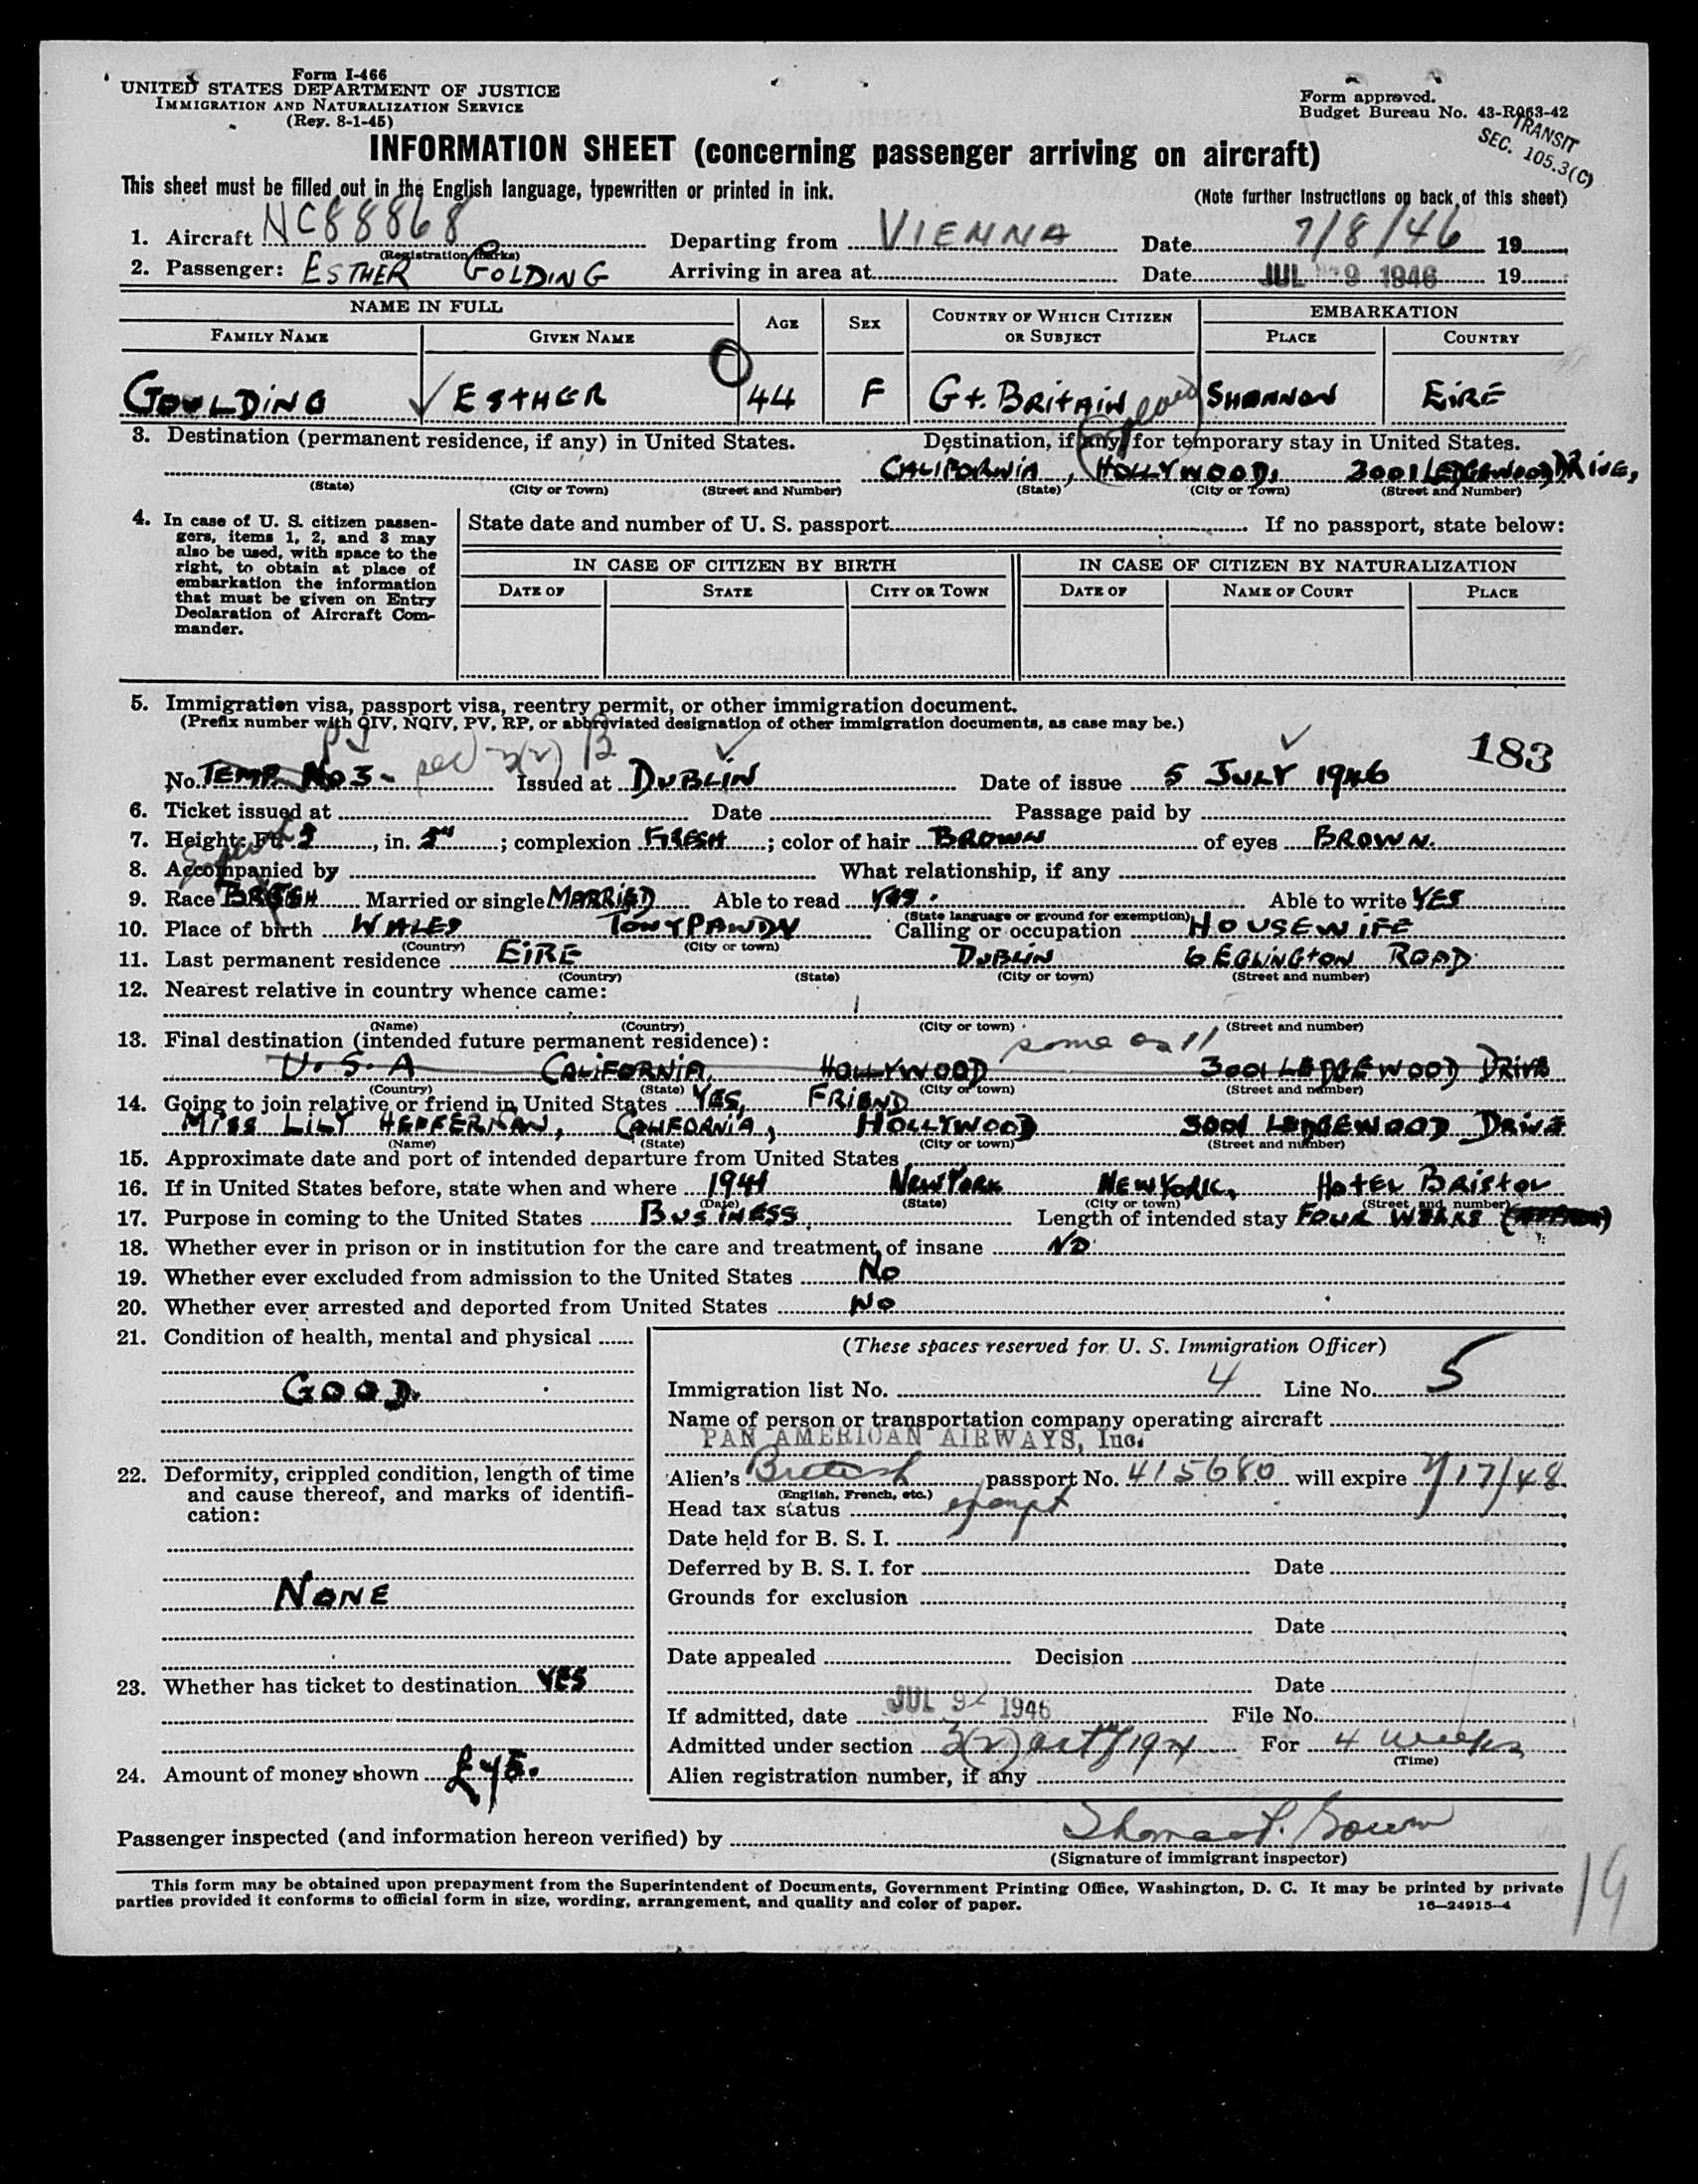 Form I-466
UNITED STATES DEPARTMENT OF JUSTICE
IMMIGRATION AND NATURALIZATION SERVICE
(Rev. 8-1-45)
Form approved.
Budget Bureau No. 43-R063-42
TRANSIT
SEC. 105.3(C)
INFORMATION SHEET (concerning passenger arriving on aircraft)
This sheet must be filled out in the English language, typewritten or printed in ink. (Note further instructions on back of this sheet)
1. Aircraft NC88868 Departing from VIENNA Date 7/8/46 19
(Registration marks)
2. Passenger: ESTHER GOLDING Arriving in area at Date JUL 9 1946 19
NAME IN FULL AGE SEX COUNTRY OF WHICH CITIZEN OR SUBJECT EMBARKATION
FAMILY NAME GIVEN NAME PLACE COUNTRY
GOULDING ESTHER 44 F Gt. BRITAIN SHANNON EIRE
3. Destination (permanent residence, if any) in United States. Destination, if any, for temporary stay in United States.
CALIFORNIA, HOLLYWOOD, 3001 LEDGEWOOD DRIVE,
(State) (City or Town) (Street and Number) (State) (City or Town) (Street and Number)
4. In case of U. S. citizen passengers, items 1, 2, and 3 may also be used, with space to the right, to obtain at place of embarkation the information that must be given on Entry Declaration of Aircraft Commander.
State date and number of U. S. passport If no passport, state below:
IN CASE OF CITIZEN BY BIRTH IN CASE OF CITIZEN BY NATURALIZATION
DATE OF STATE CITY OR TOWN DATE OF NAME OF COURT PLACE
5. Immigration visa, passport visa, reentry permit, or other immigration document.
(Prefix number with QIV, NQIV, PV, RP, or abbreviated designation of other immigration documents, as case may be.)
183
No. TEMP. No 3- sec 3(2) B Issued at DUBLIN Date of issue 5 JULY 1946
6. Ticket issued at Date Passage paid by
7. Height: Ft. , in. ; complexion FRESH ; color of hair BROWN of eyes BROWN.
8. Accompanied by What relationship, if any
9. Race Married or single MARRIED Able to read YES. Able to write YES
(State language or ground for exemption)
10. Place of birth WALES TONYPANDY Calling or occupation HOUSEWIFE
(Country) (City or town)
11. Last permanent residence EIRE DUBLIN 6 EGLINGTON ROAD
(Country) (State) (City or town) (Street and number)
12. Nearest relative in country whence came:
(Name) (Country) (City or town) (Street and number)
13. Final destination (intended future permanent residence): same as 11
U.S.A CALIFORNIA HOLLYWOOD 3001 LEDGEWOOD DRIVE
(Country) (State) (City or town) (Street and number)
14. Going to join relative or friend in United States YES, FRIEND
MISS LILY HEFFERNAN, CALIFORNIA, HOLLYWOOD 3001 LEDGEWOOD DRIVE
(Name) (State) (City or town) (Street and number)
15. Approximate date and port of intended departure from United States
16. If in United States before, state when and where 1941 NEW YORK NEW YORK, HOTEL BRISTOL
(Date) (State) (City or town) (Street and number)
17. Purpose in coming to the United States BUSINESS, Length of intended stay FOUR WEEKS
18. Whether ever in prison or in institution for the care and treatment of insane NO
19. Whether ever excluded from admission to the United States No
20. Whether ever arrested and deported from United States No
21. Condition of health, mental and physical
GOOD.
22. Deformity, crippled condition, length of time and cause thereof, and marks of identification:
NONE
23. Whether has ticket to destination YES
24. Amount of money shown
(These spaces reserved for U. S. Immigration Officer)
Immigration list No. 4 Line No. 5
Name of person or transportation company operating aircraft
PAN AMERICAN AIRWAYS, Inc.
Alien's British passport No. 415680 will expire 7/17/48
(English, French, etc.)
Head tax status exempt
Date held for B. S. I.
Deferred by B. S. I. for Date
Grounds for exclusion
Date
Date appealed Decision
Date
If admitted, date JUL 9 1946 File No.
Admitted under section 3(2) act of 1924 For 4 weeks
(Time)
Alien registration number, if any
Passenger inspected (and information hereon verified) by
(Signature of immigrant inspector)
This form may be obtained upon prepayment from the Superintendent of Documents, Government Printing Office, Washington, D. C. It may be printed by private
parties provided it conforms to official form in size, wording, arrangement, and quality and color of paper. 16—24915-4
19